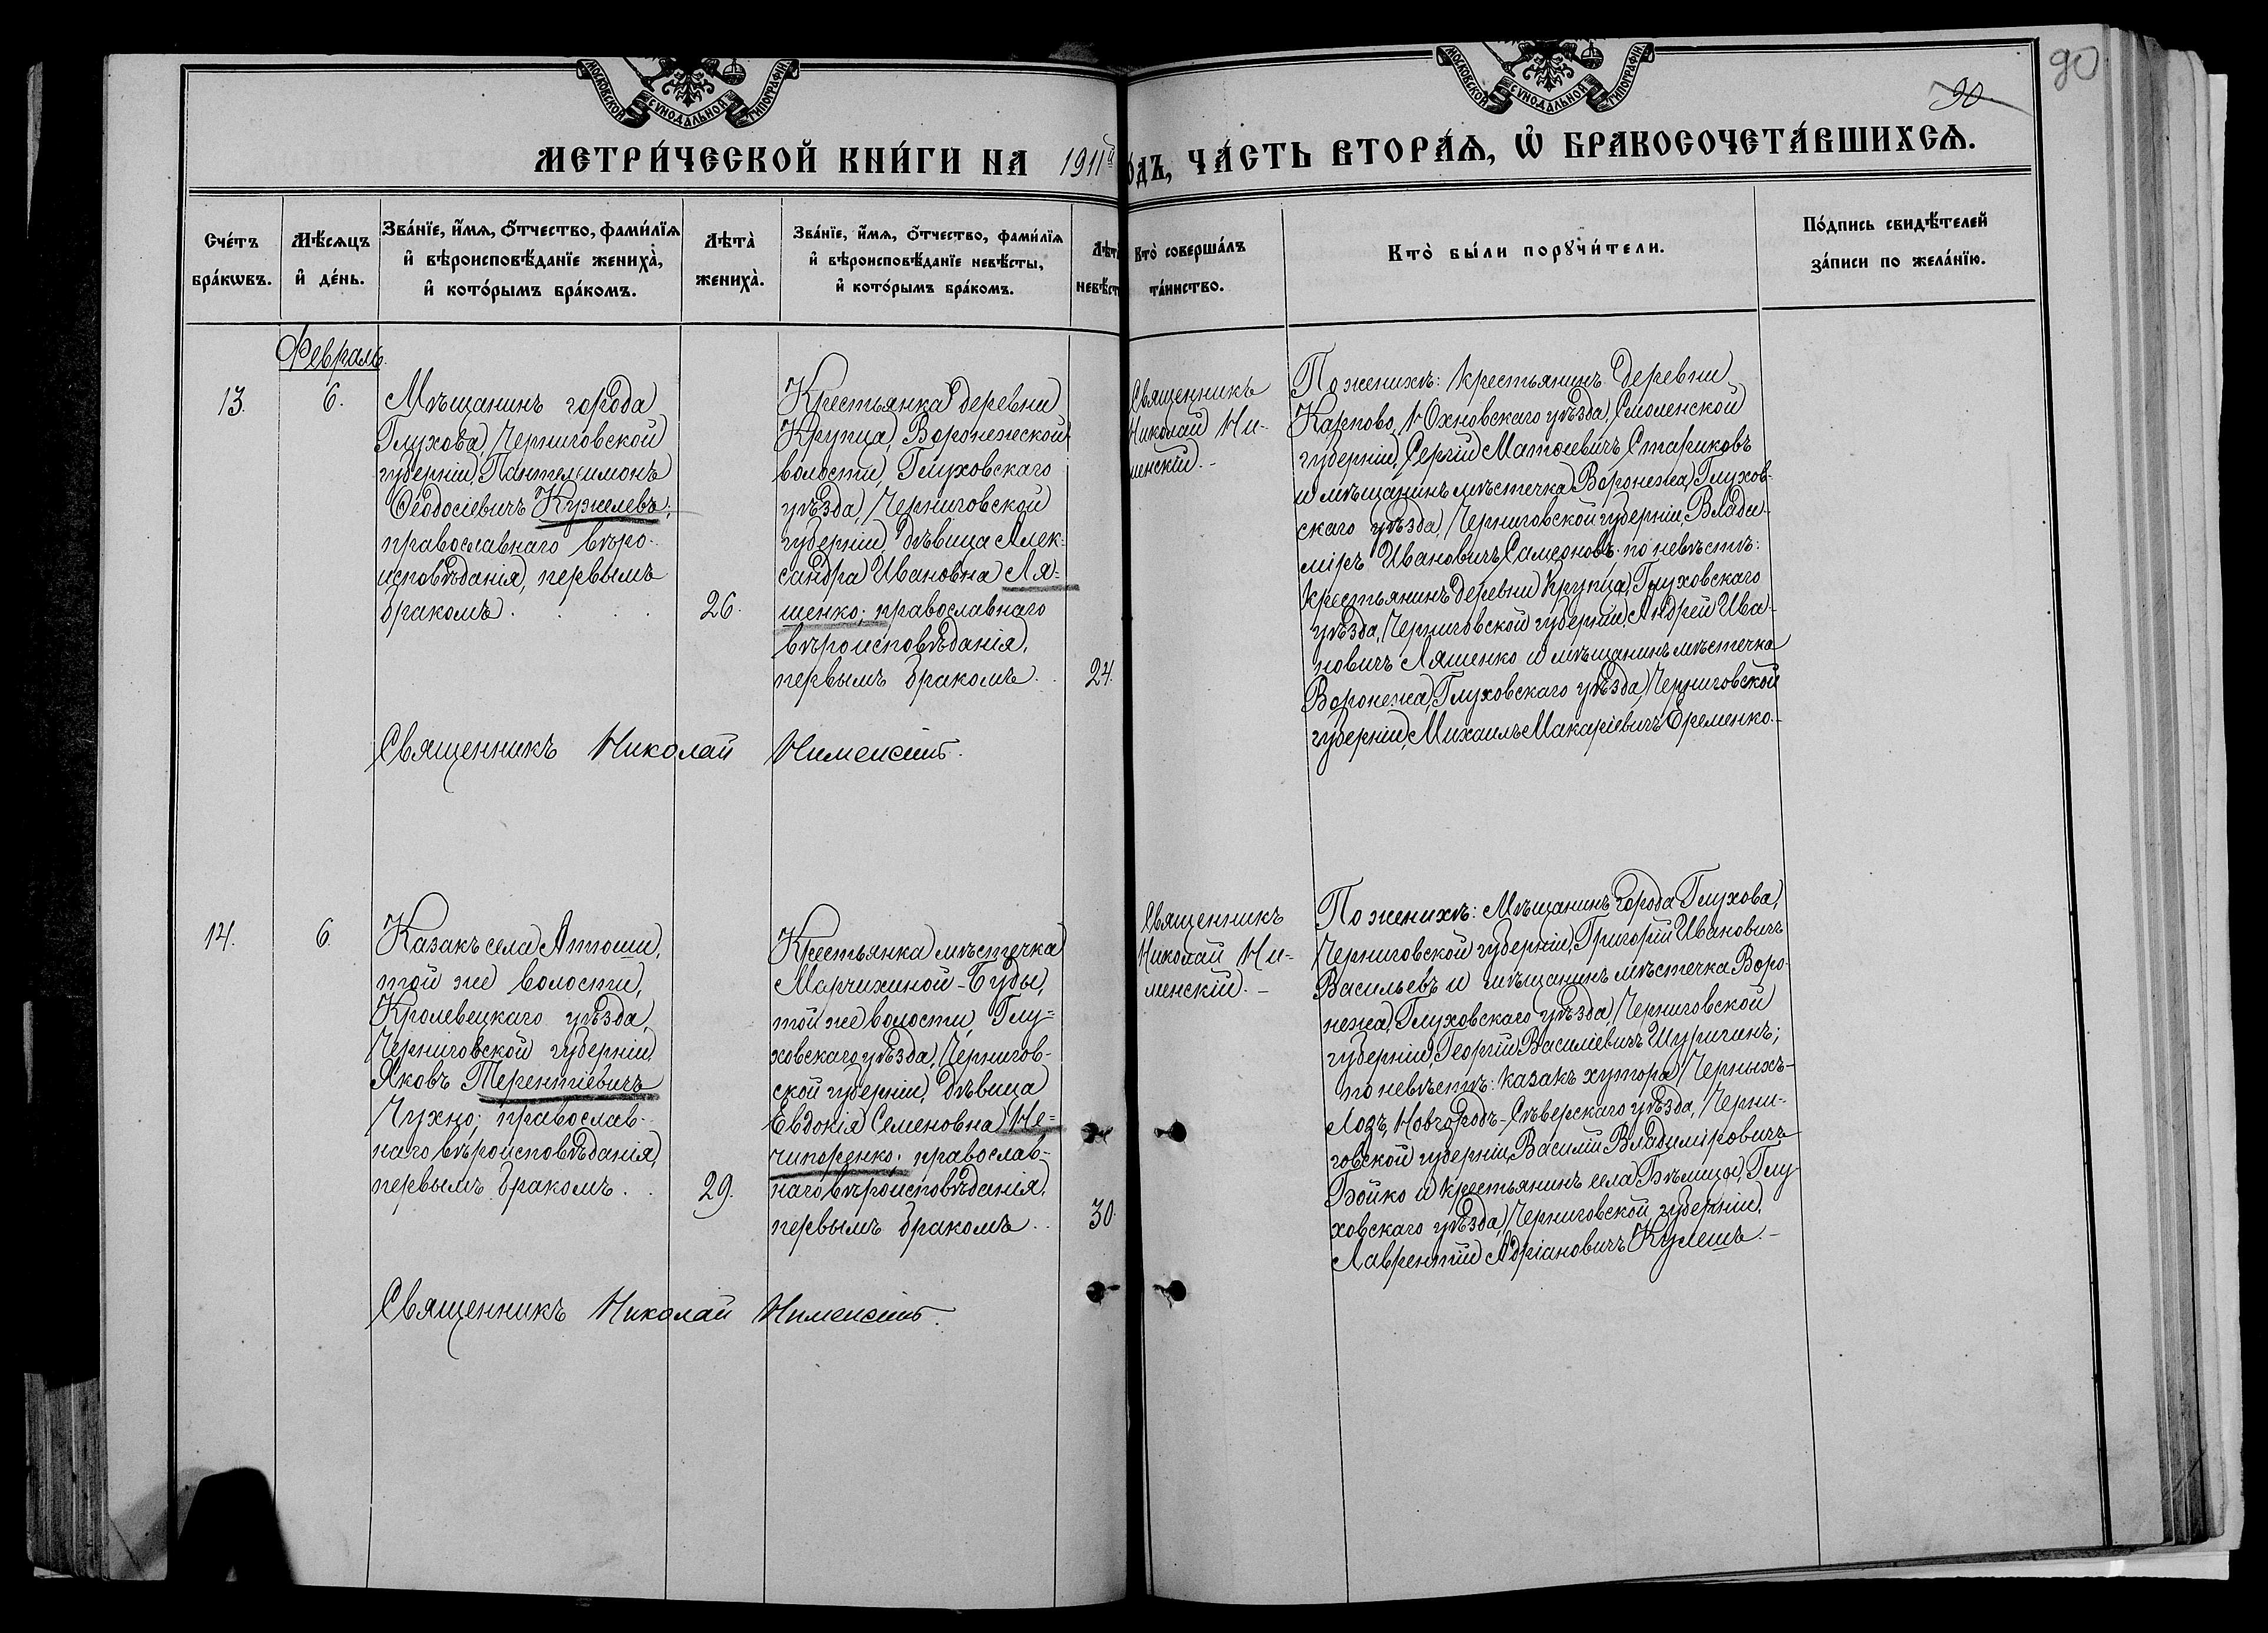 МОСКОВСКОЙ СѴНОДАЛЬНОЙ ТИПОГРАФІИ
МОСКОВСКОЙ СѴНОДАЛЬНОЙ ТИПОГРАФІИ
90
90
МЕТРИ́ЧЕСКОЙ КНИ́ГИ НА 1911й
ОДЪ, ЧА́СТЬ ВТОРА́Ѧ, Ѡ҆ БРАКОСОЧЕТА́ВШИХСѦ.
Сче́тъ
бра́кѡвъ.
Мѣ́сѧцъ
и҆ де́нь.
Зва́нїе, и҆́мѧ, ѻ҆́тчество, фами́лїѧ
и҆ вѣроисповѣ́данїе жениха̀,
и҆ кото́рымъ бра́комъ.
Лѣта̀
жениха̀.
Зва́нїе, и҆́мѧ, ѻ҆́тчество, фами́лїѧ
и҆ вѣроисповѣ́данїе невѣ́сты,
и҆ кото́рымъ бра́комъ.
Лѣт
невѣ́ст
Кто̀ соверша́лъ
та́инство.
Кто̀ бы́ли порꙋчи́тели.
По́дпись свидѣ́телей
за́писи по жела́нїю.
Февраль.
13.
6.
Мѣщанинъ города
Глухова, Черниговской
губерніи, Пантелимонъ
Ѳеодосіевичъ Кужелевъ;
православнаго вѣро-
исповѣданія, первымъ
бракомъ.
26.
Крестьянка деревни
Крупца, Воронежской
волости, Глуховскаго
уѣзда, Черниговской
губерніи, дѣвица Алек-
сандра Ивановна Ля=
шенко; православнаго
вѣроисповѣданія,
первымъ бракомъ.
24.
Священникъ
Николай Ни-
менскій.-
По женихѣ: крестьянинъ деревни
Карпово, Юхновскаго уѣзда, Смоленской
губерніи, Сергій Матѳіевичъ Стариковъ
и мѣщанинъ мѣстечка Воронежа, Глухов-
скаго уѣзда, Черниговской губерніи, Влади-
міръ Ивановичъ Самсоновъ. по невѣстѣ:
крестьянинъ деревни Крупца, Глуховскаго
уѣзда, Черниговской губерніи, Андрей Ива-
новичъ Ляшенко и мѣщанинъ мѣстечка
Воронежа, Глуховскаго уѣзда, Черниговской
губерніи, Михаилъ Макаріевичъ Еременко.-
Священникъ Николай Нименскій.
14.
6.
Казакъ села Атюши,
той же волости,
Кролевецкаго уѣзда,
Черниговской губерніи
Яковъ Терентіевичъ
Чухно; православ-
наго вѣроисповѣданія,
первымъ бракомъ.
29.
Крестьянка мѣстечка
Марчихиной-Буды,
той же волости, Глу=
ховскаго уѣзда, Чернигов-
ской губерніи, дѣвица
Евдокія Семеновна Не=
чипоренко; православ-
наго вѣроисповѣданія,
первымъ бракомъ.
30.
Священникъ
Николай Ни-
менскій.-
По женихѣ: Мѣщанинъ города Глухова,
Черниговской губерніи, Григорій Ивановичъ
Васильевъ и мѣщанинъ мѣстечка Воро-
нежа, Глуховскаго уѣзда, Черниговской
губерніи, Георгій Василіевичъ Шуригинъ;
по невѣстѣ: казакъ хутора Черныхъ-
Лозъ, Новгородъ-Сѣверскаго уѣзда, Черни-
говской губерніи, Василій Владиміровичъ
Бойко и крестьянинъ села Бѣлицы, Глу-
ховскаго уѣзда, Черниговской губерніи,
Лаврентій Адріановичъ Кулешъ.-
Священникъ Николай Нименскій.